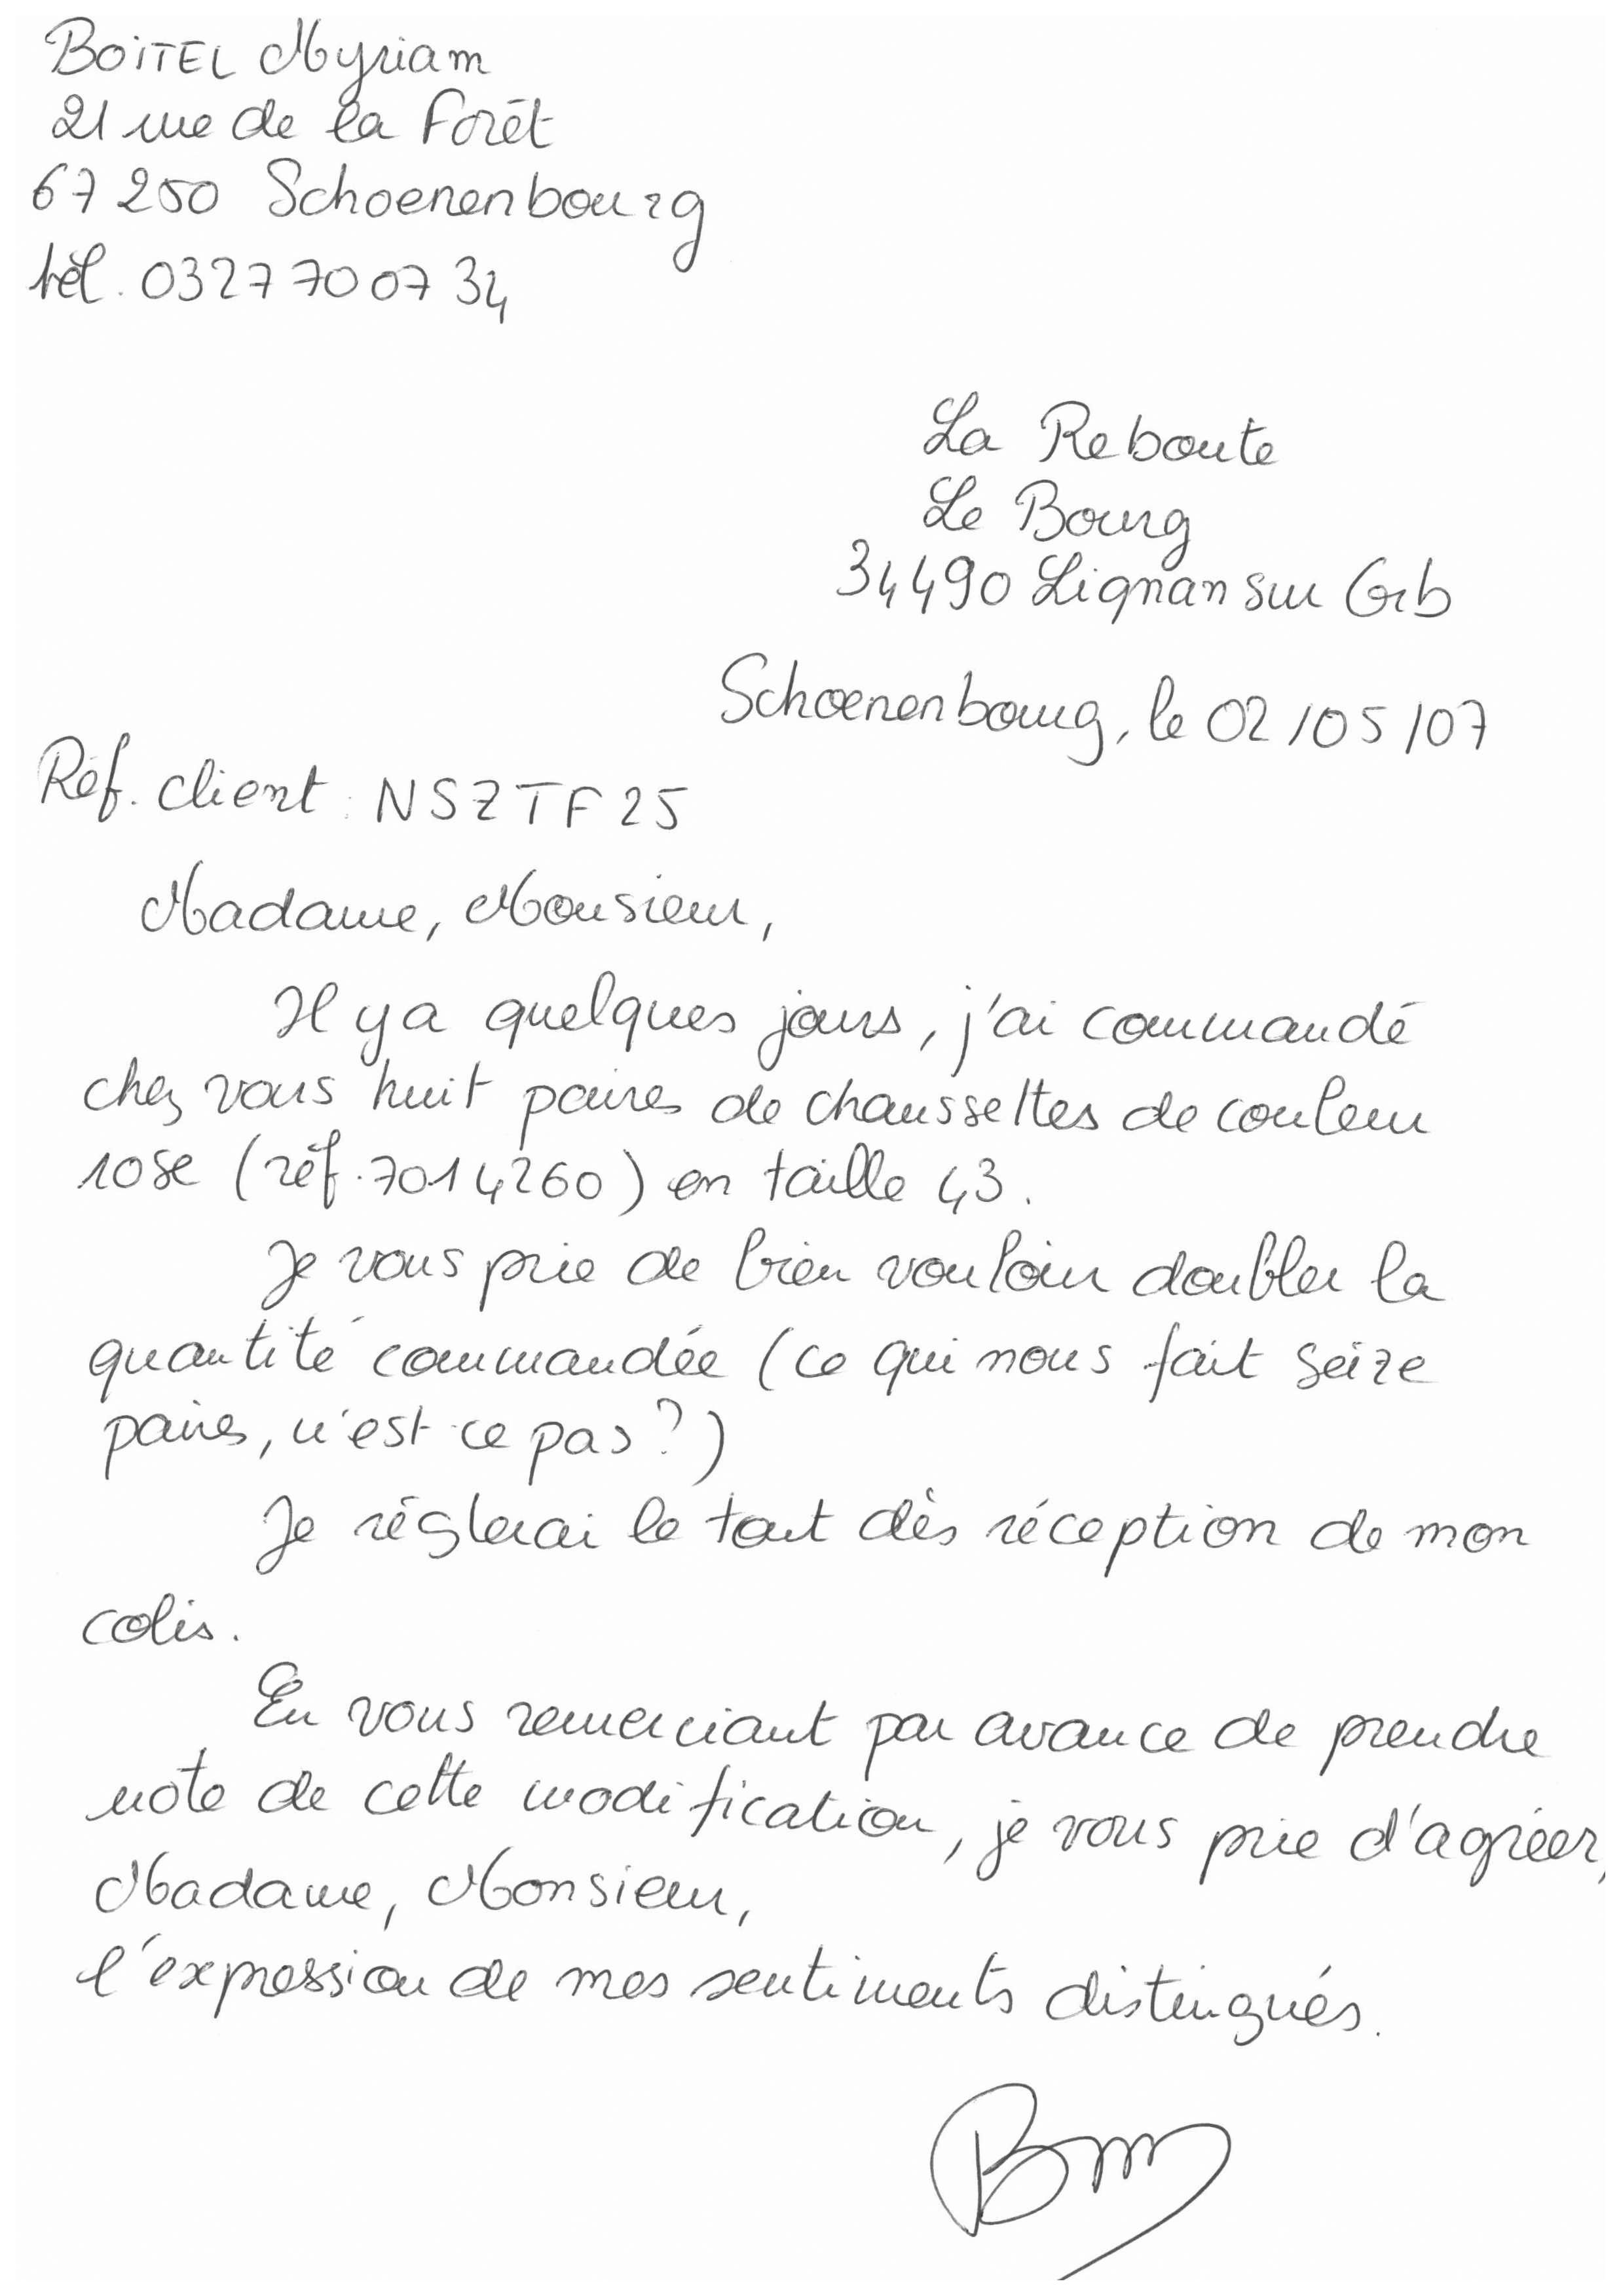 BOITEL Myriam
21 rue de la Forêt
67 250 Schoenenbourg
tél. 03 27 70 07 34
La Reboute
Le Bourg
34490 Lignan sur Orb
Schoenenbourg, le 02/05/07
Réf. client : NSZTF25
Madame, Monsieur,
Il y a quelques jours, j'ai commandé
chez vous huit paires de chaussettes de couleur
rose (réf. 7014260) en taille 43.
Je vous prie de bien vouloir doubler la
quantité commandée (ce qui nous fait seize
paires, n'est-ce pas ?)
Je réglerai le tout dès réception de mon
colis.
En vous remerciant par avance de prendre
note de cette modification, je vous prie d'agréer,
Madame, Monsieur,
l'expression de mes sentiments distingués.